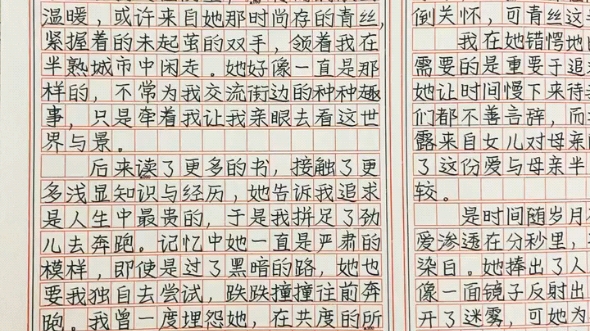 温暖，或许来自她那时尚存的青丝，
紧握着的未起茧的双手，领着我在
半熟城市中闲走。她好像一直是那
样的，不常为我交流街边的种种趣
事，只是牵着我让我亲眼去看这世
界与景。
后来读了更多的书，接触了更
多浅显知识与经历，她告诉我追求
是人生中最贵的，于是我拼足了劲
儿去奔跑。记忆中她一直是严肃的
模样，即使是过了黑暗的路，她也
要我独自去尝试，跌跌撞撞往前奔
跑。我曾一度埋怨她，在共度的所
倒关怀，可青丝这半
我在她错愕地
需要的是重要于追
她让时间慢下来待
们都不善言辞，而
露来自女儿对母亲
了这份爱与母亲半
较。
是时间随岁月
爱渗透在分秒里，
染白。她捧出了人
像一面镜子反射出
开了迷雾，可她为